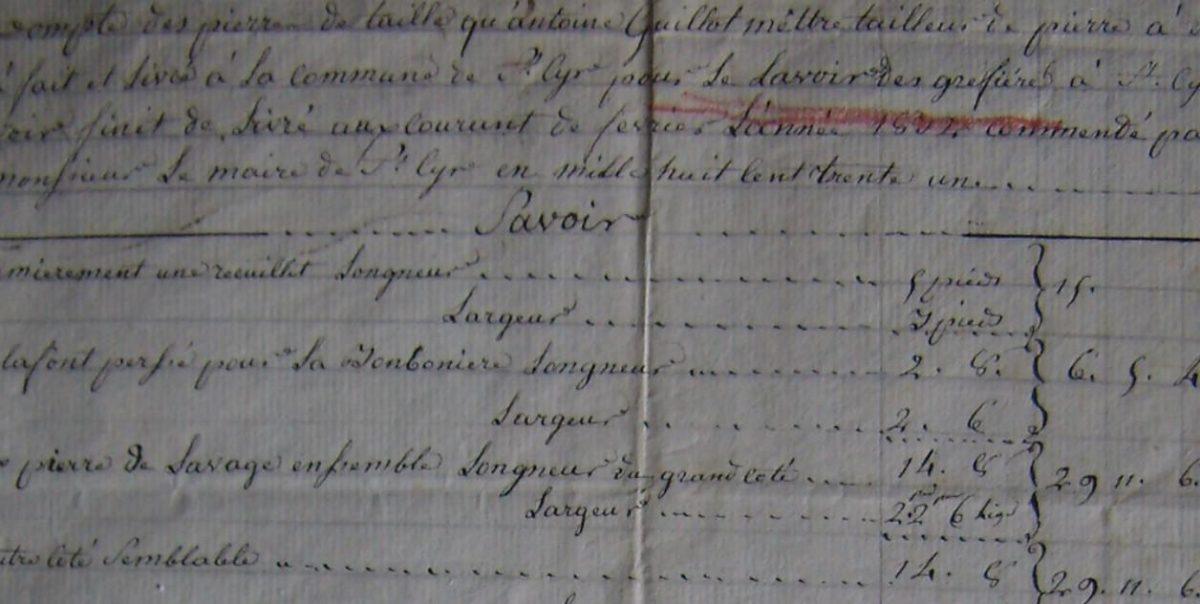 compte des pierre de taille qu'antoine Guillot mêttre tailleur de pierre à
fait et livré à la commune de St Cyr pour le lavoir des greffiére à St Cy
finit de livré aux courant de fevrier l'année 1832 commendé pa
monsieur le maire de St Cyr en mille huit cent trente une
Savoir
mierement une recuillet longueur 5 pieds } 15.
Largeur 3 pieds
lafont persié pour la longueur 2. 8. } 6. 5. 4
Largeur 2. 6
pierre de lavage ensemble longueur du grand coté 14. 8 } 29 11. 6.
Largeur 2 6 lig
utre côté semblable 14. 8 } 29. 11. 6.